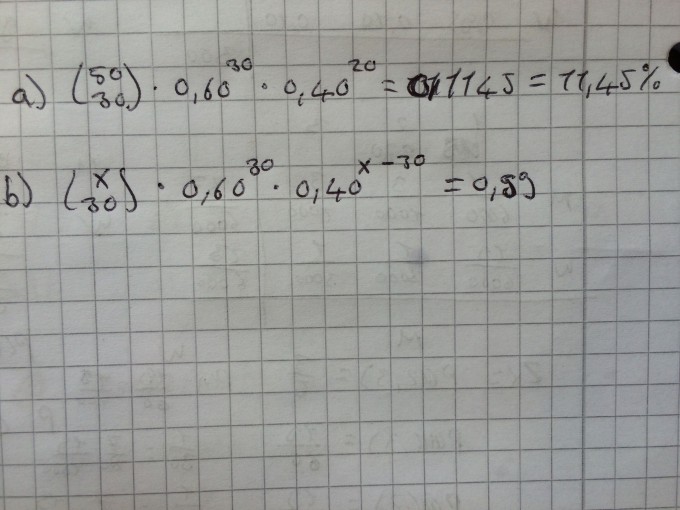 a) (50 30) · 0,60^30 · 0,40^20 = 0,1145 = 11,45%
b) (x 30) · 0,60^30 · 0,40^x-30 = 0,59